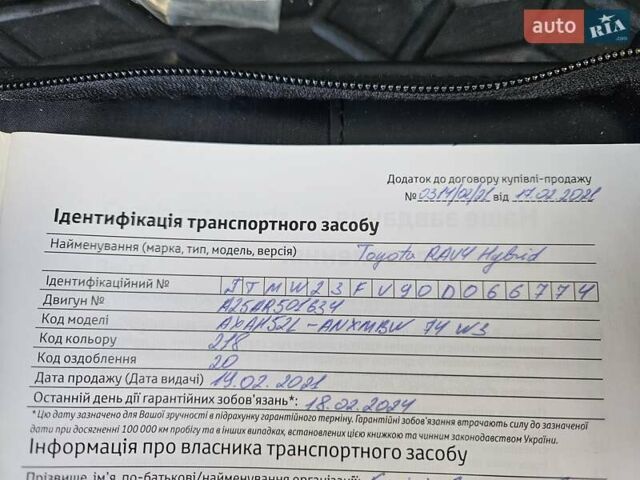 auto RIA.com
Додаток до договору купівлі-продажу
№ 031/02/21 від 17.02.2021
Ідентифікація транспортного засобу
Найменування (марка, тип, модель, версія) Toyota RAV4 Hybrid
Ідентифікаційний № JTMW23FV90D066774
Двигун № A25AR501634
Код моделі AXAH52L-ANXMBW 74 W3
Код кольору 218
Код оздоблення 20
Дата продажу (Дата видачі) 19.02.2021
Останній день дії гарантійних зобов'язань*: 18.02.2024
*Цю дату зазначено для Вашої зручності в підрахунку гарантійного терміну. Гарантійні зобов'язання втрачають силу до зазначеної
дати при досягненні 100 000 км пробігу та в інших випадках, встановлених цією книжкою та чинним законодавством України.
Інформація про власника транспортного засобу
Прізвище, ім'я, по-батькові/найменування організації: